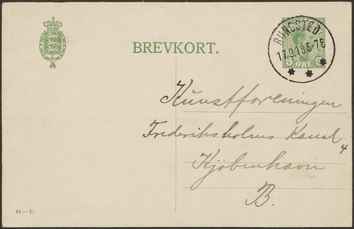 BREVKORT.
RUNGSTED
ØRE
Kunstforeningen
Frederiksholms Kanal
4
Kjöbenhavn
B.